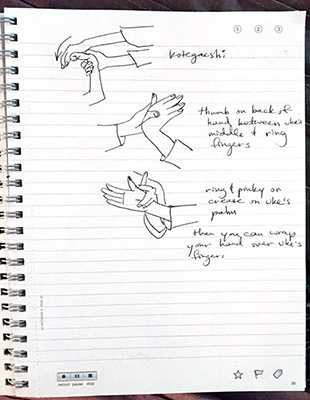 1 2 3
kotegaeshi
thumb on back of
hand between uke's
middle & ring
fingers
ring & pinky on
crease on uke's
palm
then you can wrap
your hand over uke's
fingers
record pause stop